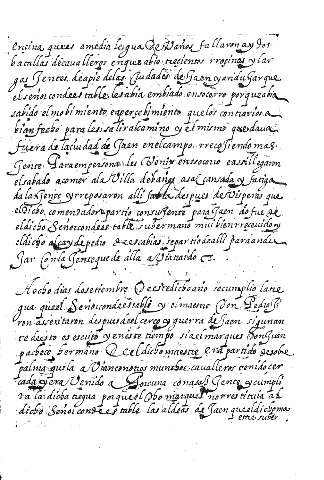 encina que es a media legua de Vaños fallaron ay dos
batallas de cavalleros en que abia trecientos rroçinos y lar
gas Jentes de a pie de las ciudades de Jaen y andujar que
el señor condestable les abia embiado en socorro porque abia
sabido el mobimiento e apercebimiento que los contrarios a
bian fecho para les salir al camino y el mismo quedava
fuera de la ciudad de Jaen en el campo rrecojiendo mas
Jente para en persona les Venir en socorro e assi llegaron
el sabado a comer a la Villa de baños asaz cansada y fatiga
da la Jente y rreposaron alli fasta despues de Visperas que
el dicho comendador partio con su Jente para Jaen do fue de
el dicho Señor condestable su hermano mui bien rrecevido y
el dicho alcayde pedro de escabias se partio de alli para andu
Jar con la Jente que de illa a Vía sacado

A ocho dias de setiembre De este dicho año se cumplio la tre
gua que el Señor condestable y el maestre Don Pedro Ji
ron asentaron despues de el cerco y guerra de Jaen segun an
te de esto es escrito y en este tiempo si a el marques Don Juan
pacheco hermano De el dicho maestre era partido de sobre
palma que la a Vian con otros muchos cavalleros tenido cer
cada y era Venido a Porcuna con asaz Jente y cumpli
da la dicha tregua porque el dicho marques no rrestituia al
dicho Señor condestable las aldeas de Jaen que el dicho maes
tre su her